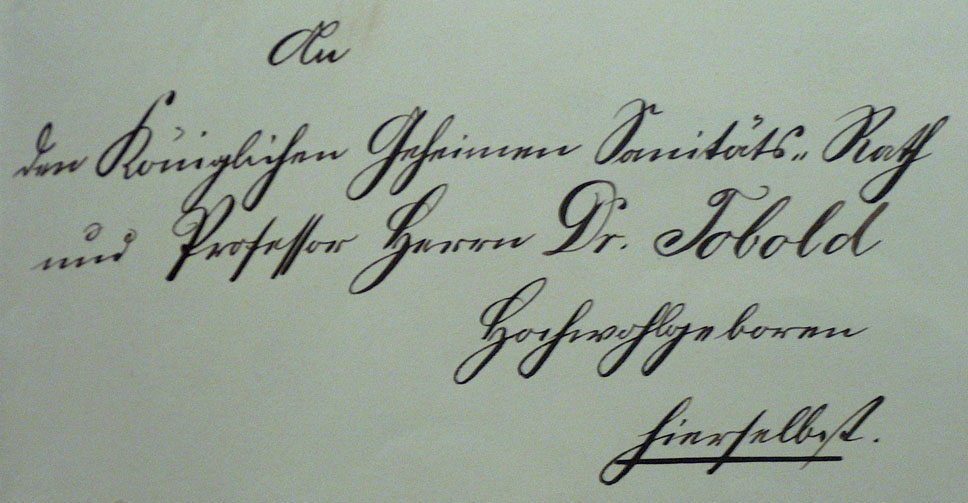 An
den Königlichen Geheimen Sanitäts-Rath
und Professor Herrn Dr. Tobold
Hochwohlgeboren
hierselbst.